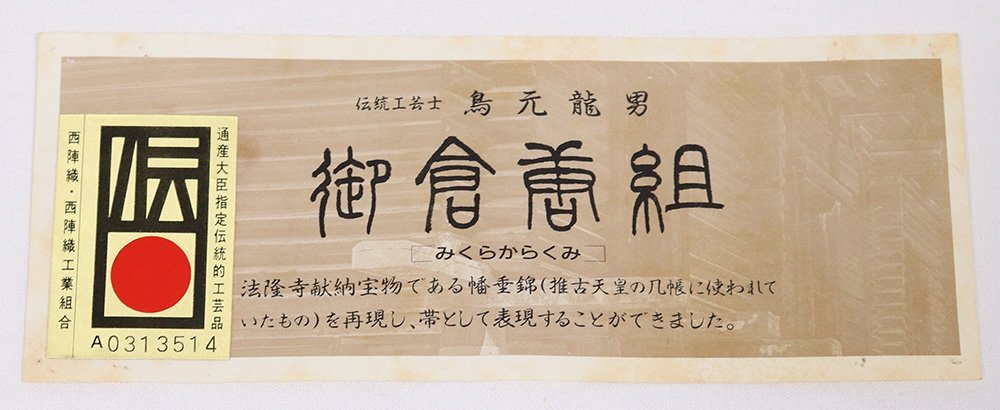 伝統工芸士 鳥元龍男
御倉唐組
みくらからくみ
法隆寺献納宝物である幡垂錦(推古天皇の几帳に使われて
いたもの)を再現し、帯として表現することができました。
通産大臣指定伝統的工芸品
伝
西陣織・西陣織工業組合
A0313514